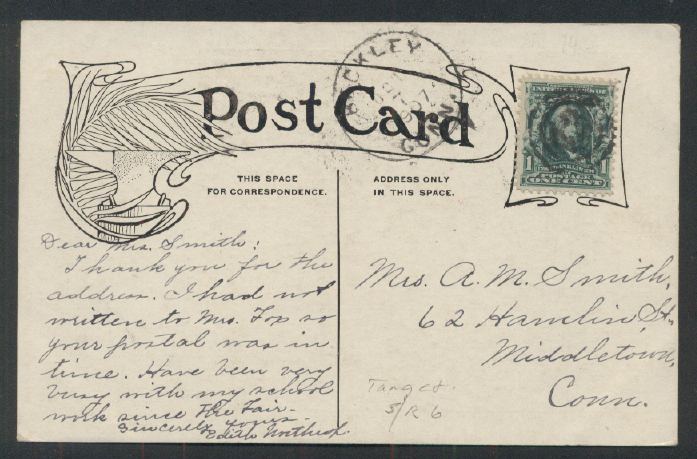 Post Card
THIS SPACE
FOR CORRESPONDENCE.
ADDRESS ONLY
IN THIS SPACE.
CONN.
1907
1
ONE CENT
Dear Mrs. Smith:
Thank you for the
address. I had not
written to Mrs. Fox so
your postal was in
time. Have been very
busy with my school
work since the Fair.
Sincerely yours
Edith
Mrs. A. M. Smith,
62 Hamlin St.,
Middletown,
Conn.
5/R 6